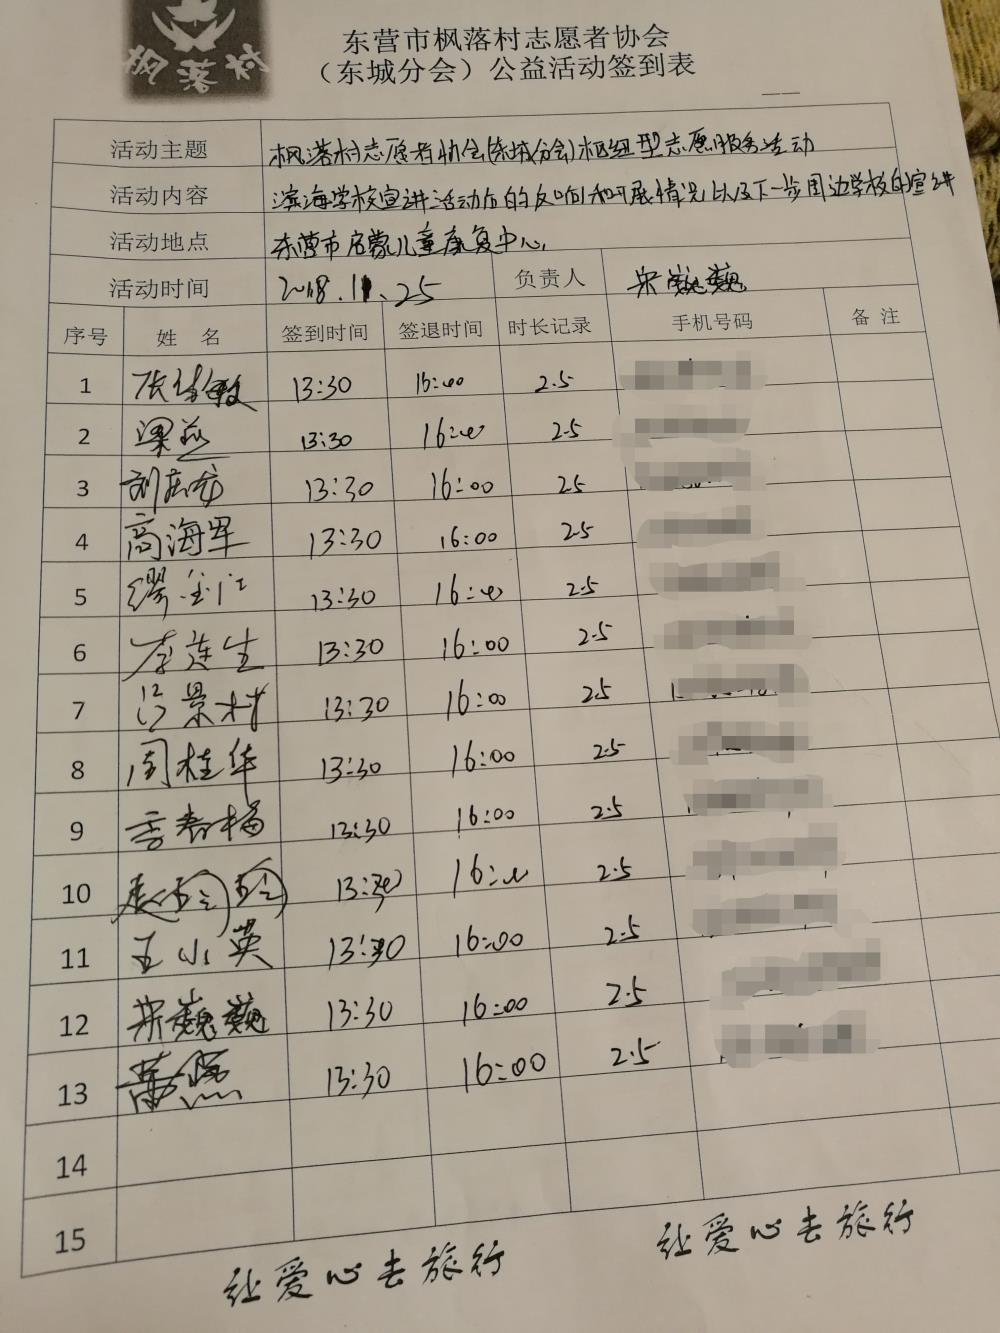 枫落村
东营市枫落村志愿者协会
（东城分会）公益活动签到表
活动主题 枫落村志愿者协会(东城分会)枢纽型志愿服务活动
活动内容 滨海学校宣讲活动后的反响和开展情况以及下一步周边学校的宣讲
活动地点 东营市启蒙儿童康复中心.
活动时间 2018.11.25 负责人 宋巍巍
序号 姓 名 签到时间 签退时间 时长记录 手机号码 备 注
1 13:30 16:00 2.5
2 梁燕 13:30 16:00 2.5
3 13:30 16:00 2.5
4 高海军 13:30 16:00 2.5
5 缪金江 13:30 16:00 2.5
6 李连生 13:30 16:00 2.5
7 景村 13:30 16:00 2.5
8 周桂华 13:30 16:00 2.5
9 李春梅 13:30 16:00 2.5
10 13:30 16:00 2.5
11 王小英 13:30 16:00 2.5
12 宋巍巍 13:30 16:00 2.5
13 13:30 16:00 2.5
14
15
让爱心去旅行 让爱心去旅行